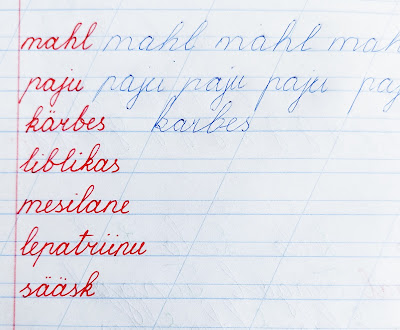 mahl mahl mahl mah
paju paju paju paju paj
kärbes karbes
liblikas
mesilane
lepatriinu
sääsk